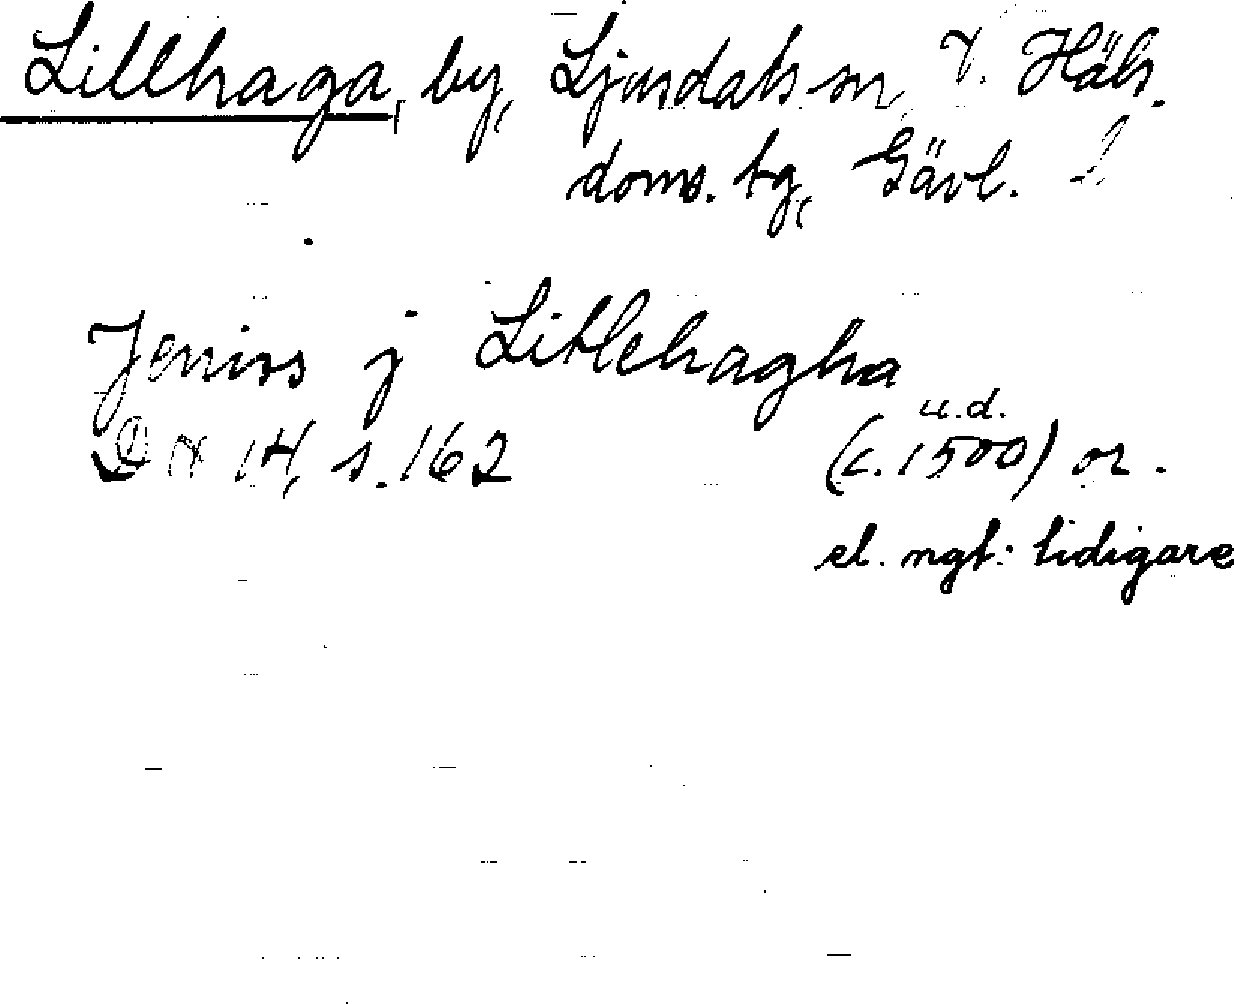 Lillhaga, by, Ljusdals sn, V. Häls.
doms. tg, Gävl. l.
Jeniss j Litlehagha
u.d.
14, s. 162 (c. 1500) or.
el. ngt. tidigare